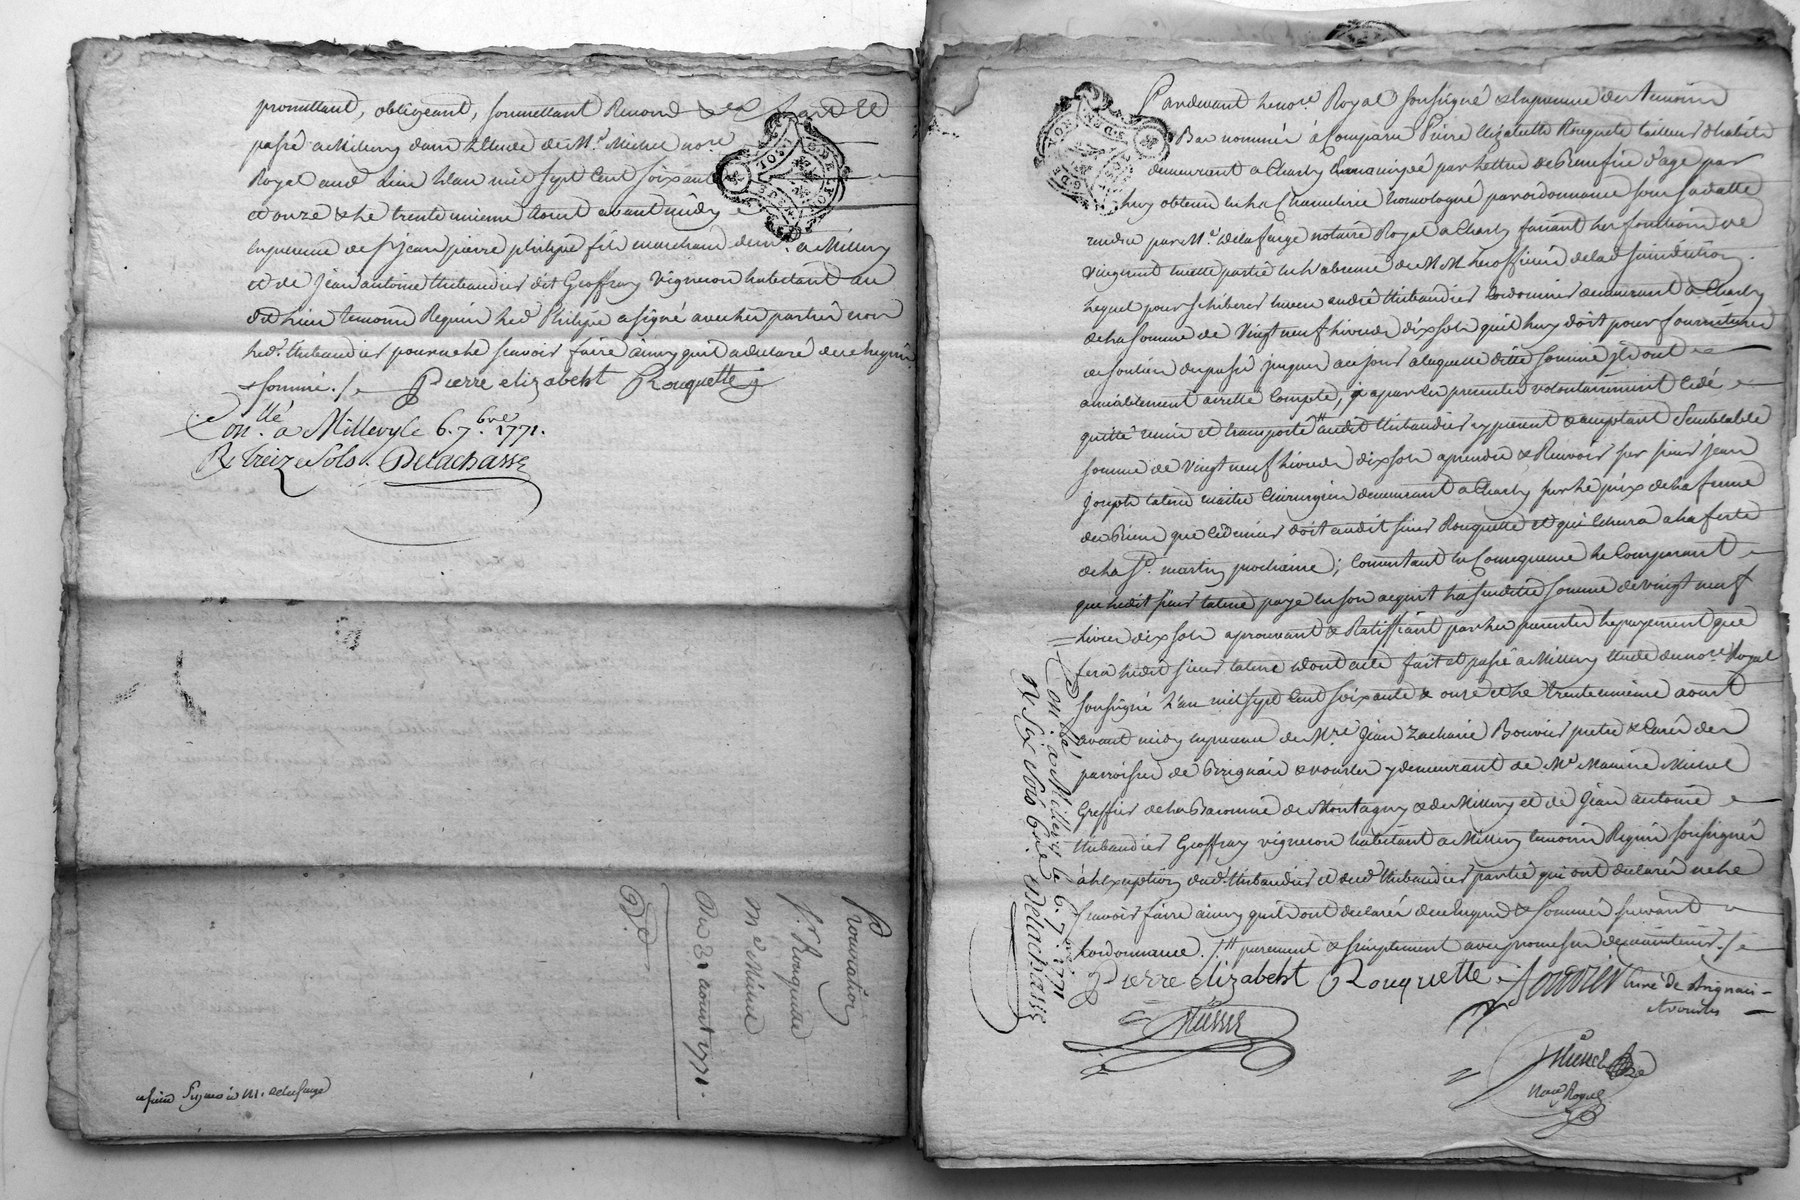 promettant, obligeant, soumettant Renond &c
passé a Millery dans L'Etude de Me. Michel nore
Royal aud. Lieu L'an mil sept Cent soixante
et onze & le trente unieme aoust avant midy
En presence de sr. jean pierre philippe fils marchand demt. a Millery
et de Jean antoine thibaudier dit Geoffray vigneron habitant au
dit Lieu temoins Requis led. Philippe a signé avec les parties non
led. thibaudier pour ne le scavoir faire ainsy qu'il a declaré de ce Enquis
& sommé ./.
Pierre elizabeht Rouquette
Conllé a Millery le 6. 7.bre 1771.
R treize sols. Delachasse
Procuration
Sr. Rouquette
Me Mienne
Du 31 aoust 1771.
a faire Signer a M. delafarge
LYON
Pardevant le nore. Royal soussigné & En presence des temoins
Bas nommés à Comparu Pierre elizabeth Rouquette tailleur d'habits
demeurant a Charly Emancippé par Lettres de Benefice d'age par
luy obtenu en la Chancelerie homologué par ordonnance sous sa datte
rendue par Me. delafarge notaire Royal a Charly faisant les fonctions de
en l'absence de MM. les officiers de lad. jurisdiction.
Lequel pour se liberer Envers andré thibaudier Cordonnier demeurant a Charly
de la somme de Vingt neuf livres dix sols qu'il luy doit pour fournitures
de souliers du passé jusques au jour a laquelle ditte somme ils ont
amiablement arretté Compte, a par les presentes volontairement Cedé
quitté remis et transporté audit thibaudier cy present & acceptant semblable
somme de vingt neuf livres dix sols a prendre & Recevoir sur sieur jean
Joseph maitre Chirurgien demeurant a Charly sur le prix de la ferme
des Biens que Ce dernier doit audit sieur Rouquette et qui Echera a la feste
de la St. martin prochaine; Consentant En Consequence le Comparant
que ledit sieur paye En son acquit la susditte somme de vingt neuf
livres dix sols aprouvant & Ratiffiant par les presentes le payement que
fera ledit sieur dont acte fait et passé a Millery Etude du nore. Royal
soussigné L'an mil sept Cent soixante & onze et le trente unieme aoust
avant midy En presence de Mre. Jean Zacharie Bouvier pretre & Curé des
parroisses de Brignais & vourles y demeurant de Me Maurice Mienne
Greffier de la Baronnie de Montagny & de Millery et de Jean antoine
thibaudier Geoffray vigneron habitant a Millery temoins Requis soussignés
à l'Exception dud. thibaudier et dud. thibaudier partie qui ont declarés ne le
scavoir faire ainsy qu'il ont declarés de ce Enquis & sommés suivant
Lordonnance. purement & simplement avec promesse de maintenir ./.
Pierre elizabeht Rouquette
Bouvier Curé de Brignais
et vourles
Michel
Nore. Royal
Conllé a Millery le 6. 7.bre 1771
R Six sols 6 Delachasse